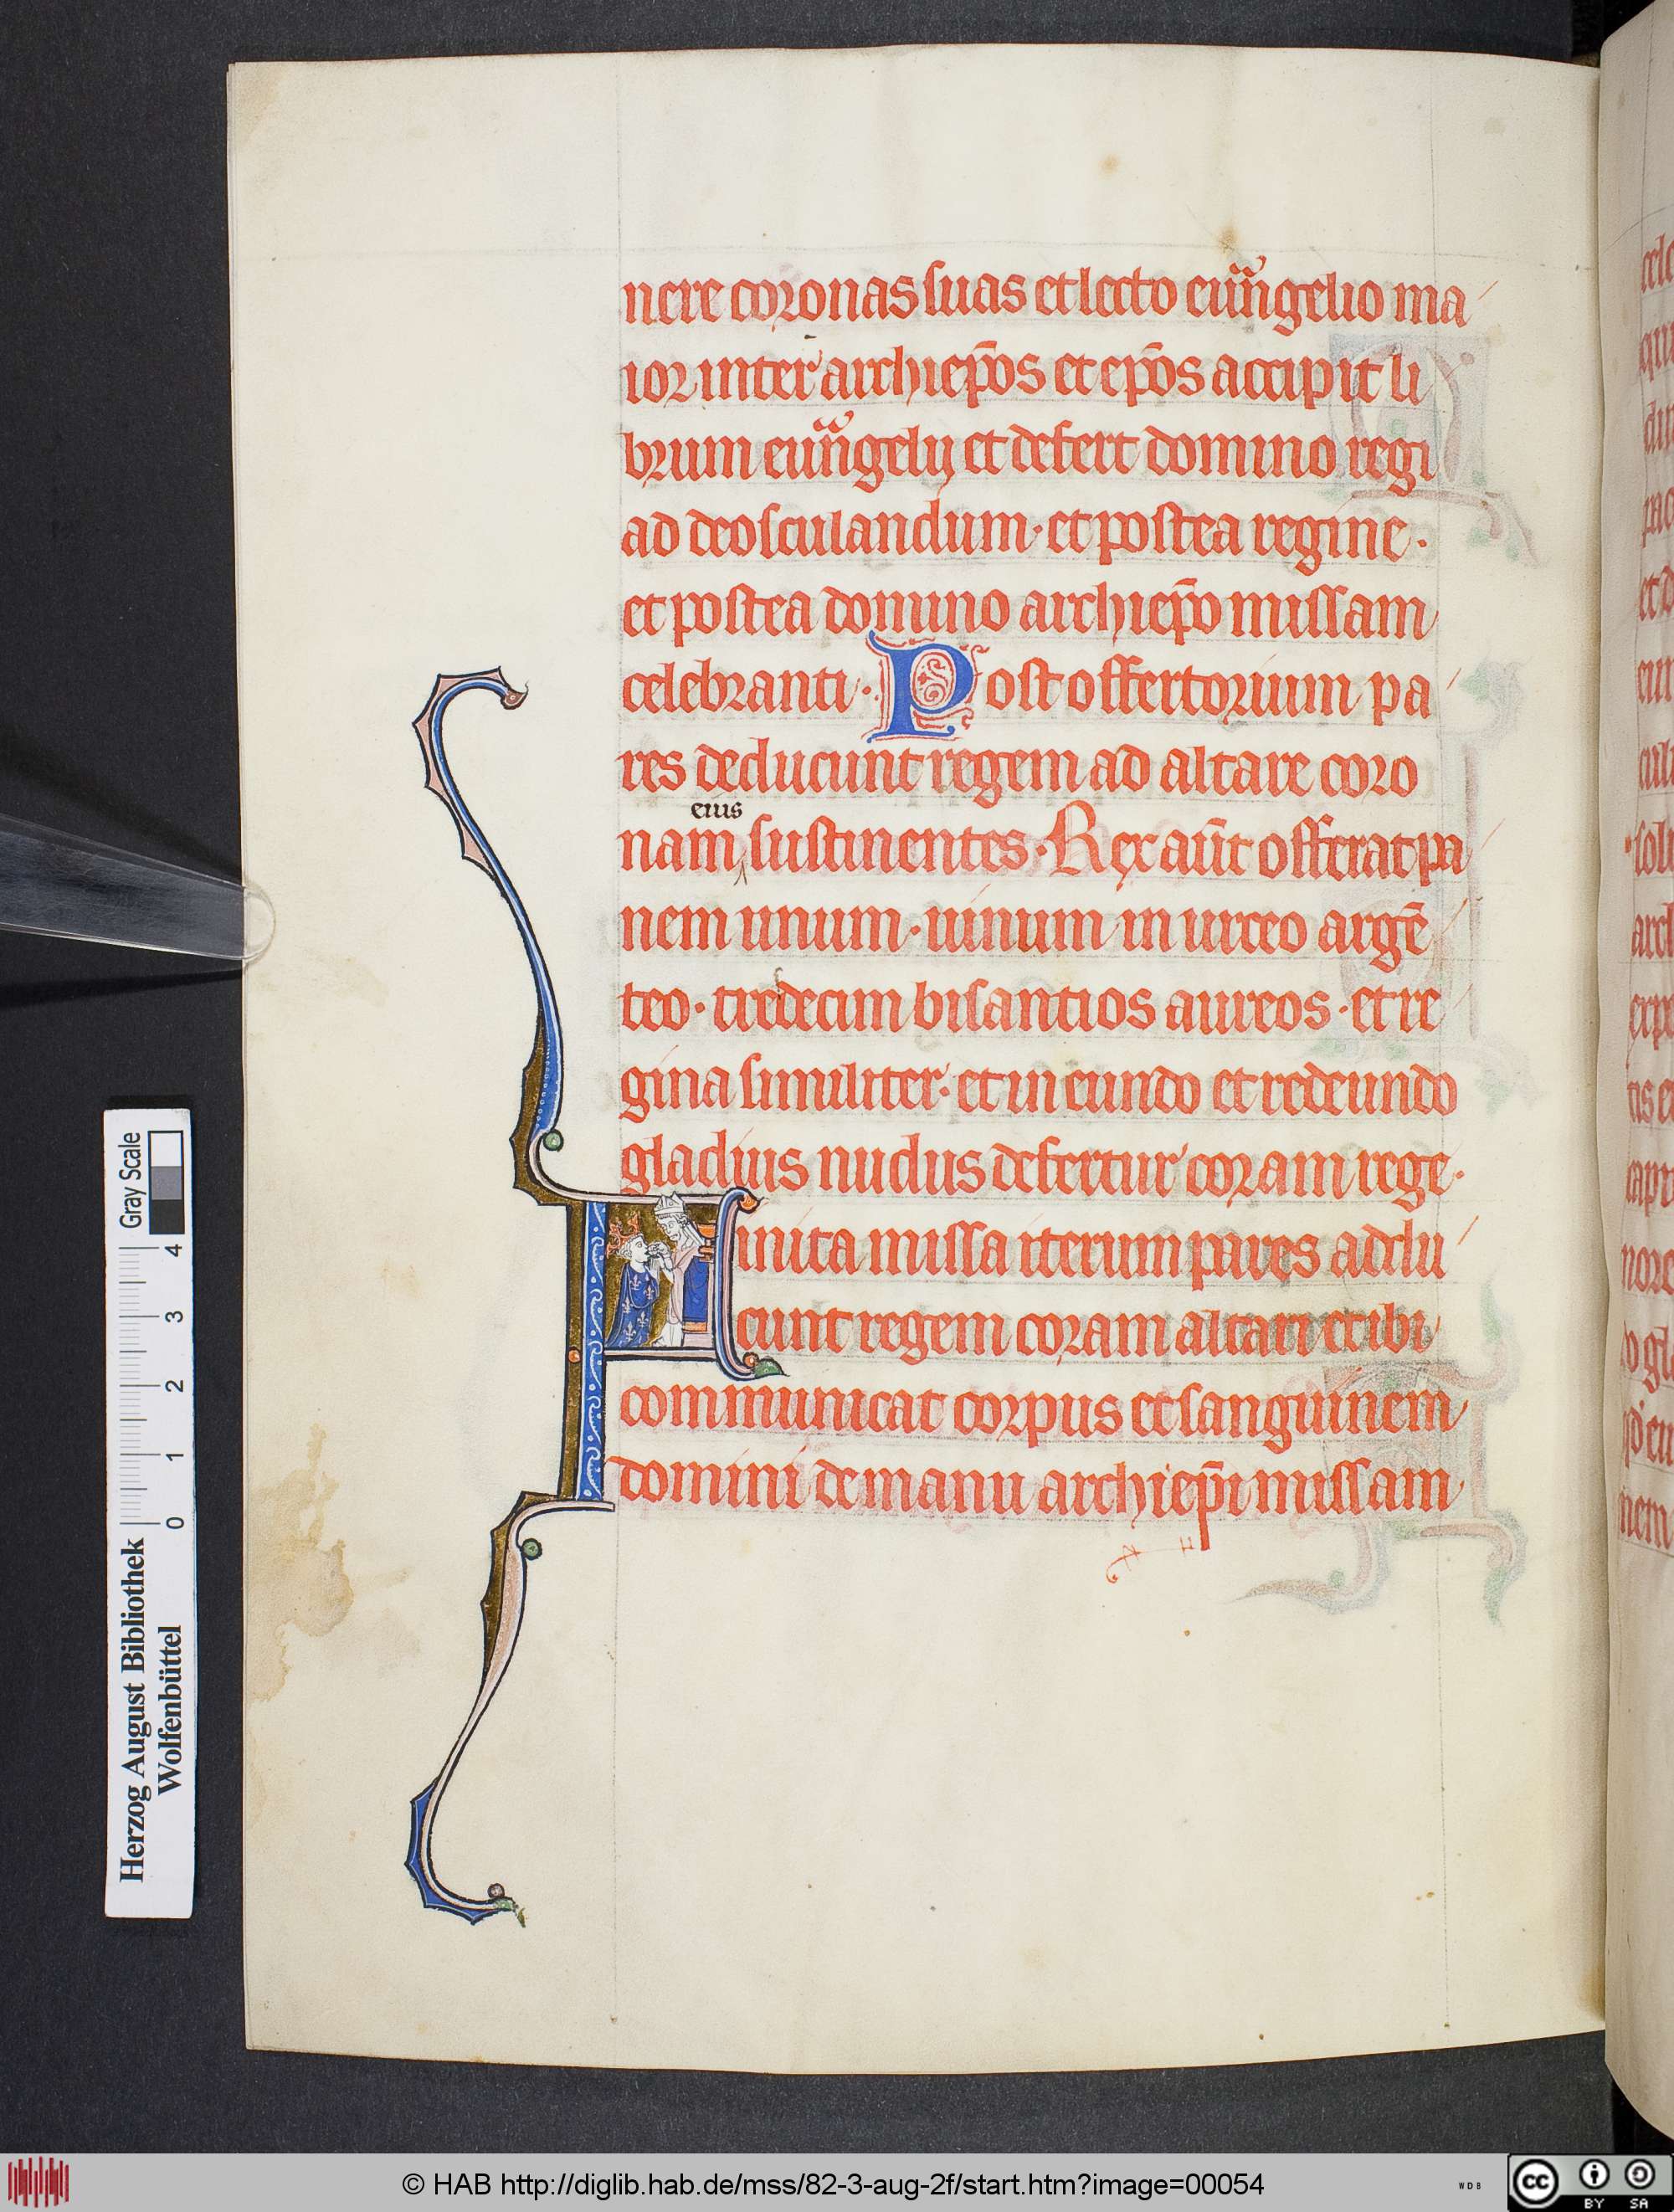 nere coronas suas et lecto euu̅ngelio ma
ior inter archiep̅os et ep̅os accipit li
brum euu̅ngelij et defert domino regi
ad deosculandum · et postea regine ·
et postea domino archiep̅o missam
celebranti · Post offertorium pa
res deducunt regem ad altare coro
nam eius sustinentes · Rex aut̅ offerat pa
nem unum · uinum in urceo arge̅
teo · tredecim bisantios aureos · et re
gina similiter · et in eundo et redeundo
gladius nudus defertur coram rege ·
Finita missa iterum pares addu
cunt regem coram altari et ibi
communicat corpus et sanguinem
domini de manu archiep̅i missam
Herzog August Bibliothek
Wolfenbüttel
0 1 2 3 4
Gray Scale
© HAB http://diglib.hab.de/mss/82-3-aug-2f/start.htm?image=00054
WDB
CC BY SA